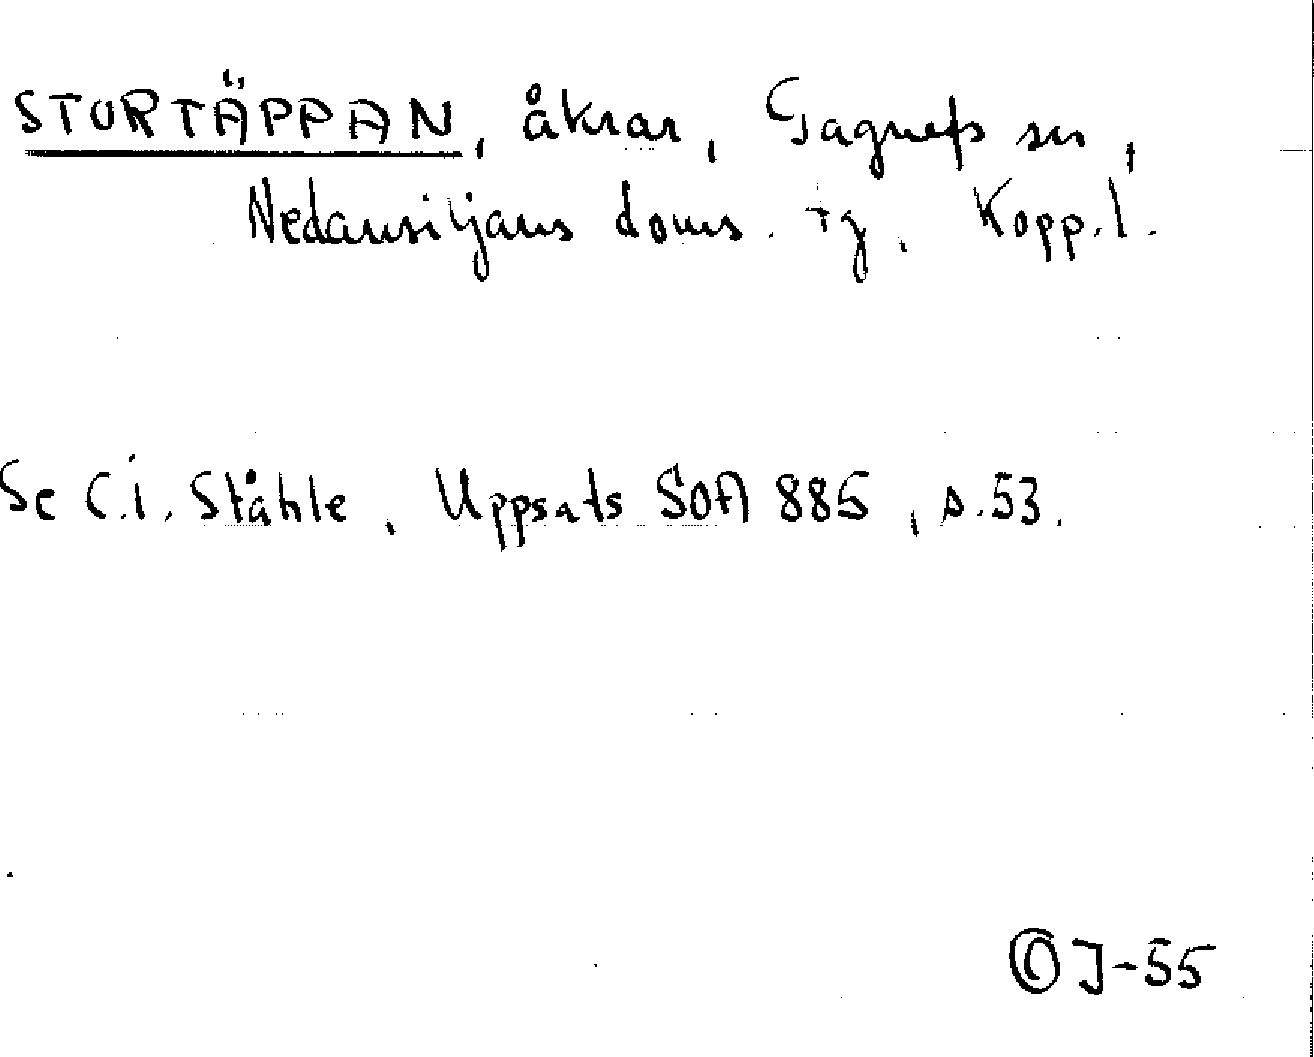 STORTÄPPAN, åkrar, Gagnefs sn,
Nedansiljans doms. tg. Kopp. l.
Se C.I. Ståhle, Uppsats SOA 885, s. 53.
OJ-55